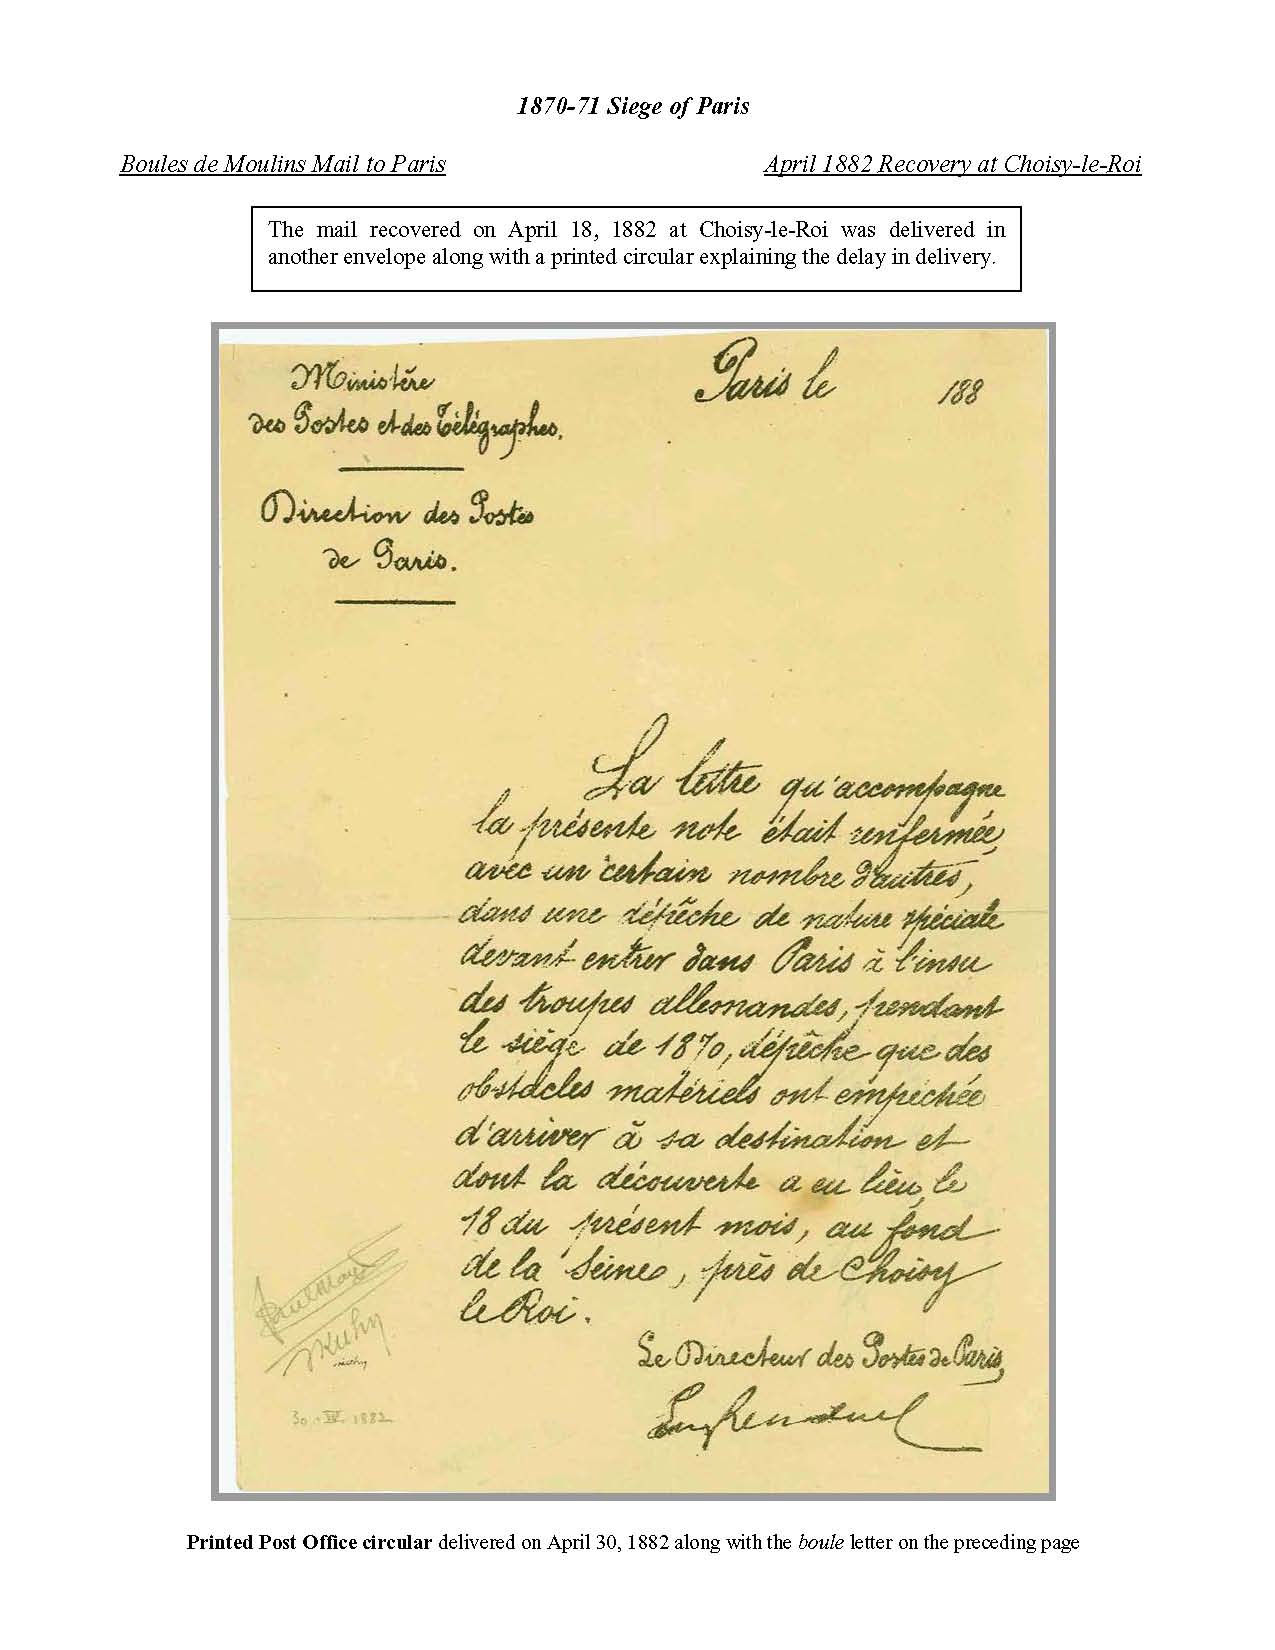 1870-71 Siege of Paris
Boules de Moulins Mail to Paris
April 1882 Recovery at Choisy-le-Roi
The mail recovered on April 18, 1882 at Choisy-le-Roi was delivered in
another envelope along with a printed circular explaining the delay in delivery.
Ministère
des Postes et des Télégraphes.
Paris le 188
Direction des Postes
de Paris.
La lettre qu'accompagne
la présente note était renfermée,
avec un certain nombre d'autres,
dans une dépêche de nature spéciale
devant entrer dans Paris à l'insu
des troupes allemandes, pendant
le siège de 1870, dépêche que des
obstacles matériels ont empêchée
d'arriver à sa destination et
dont la découverte a eu lieu, le
18 du présent mois, au fond
de la Seine, près de Choisy
le Roi.
Le Directeur des Postes de Paris,
Kuhn
30.IV.1882
Printed Post Office circular delivered on April 30, 1882 along with the boule letter on the preceding page